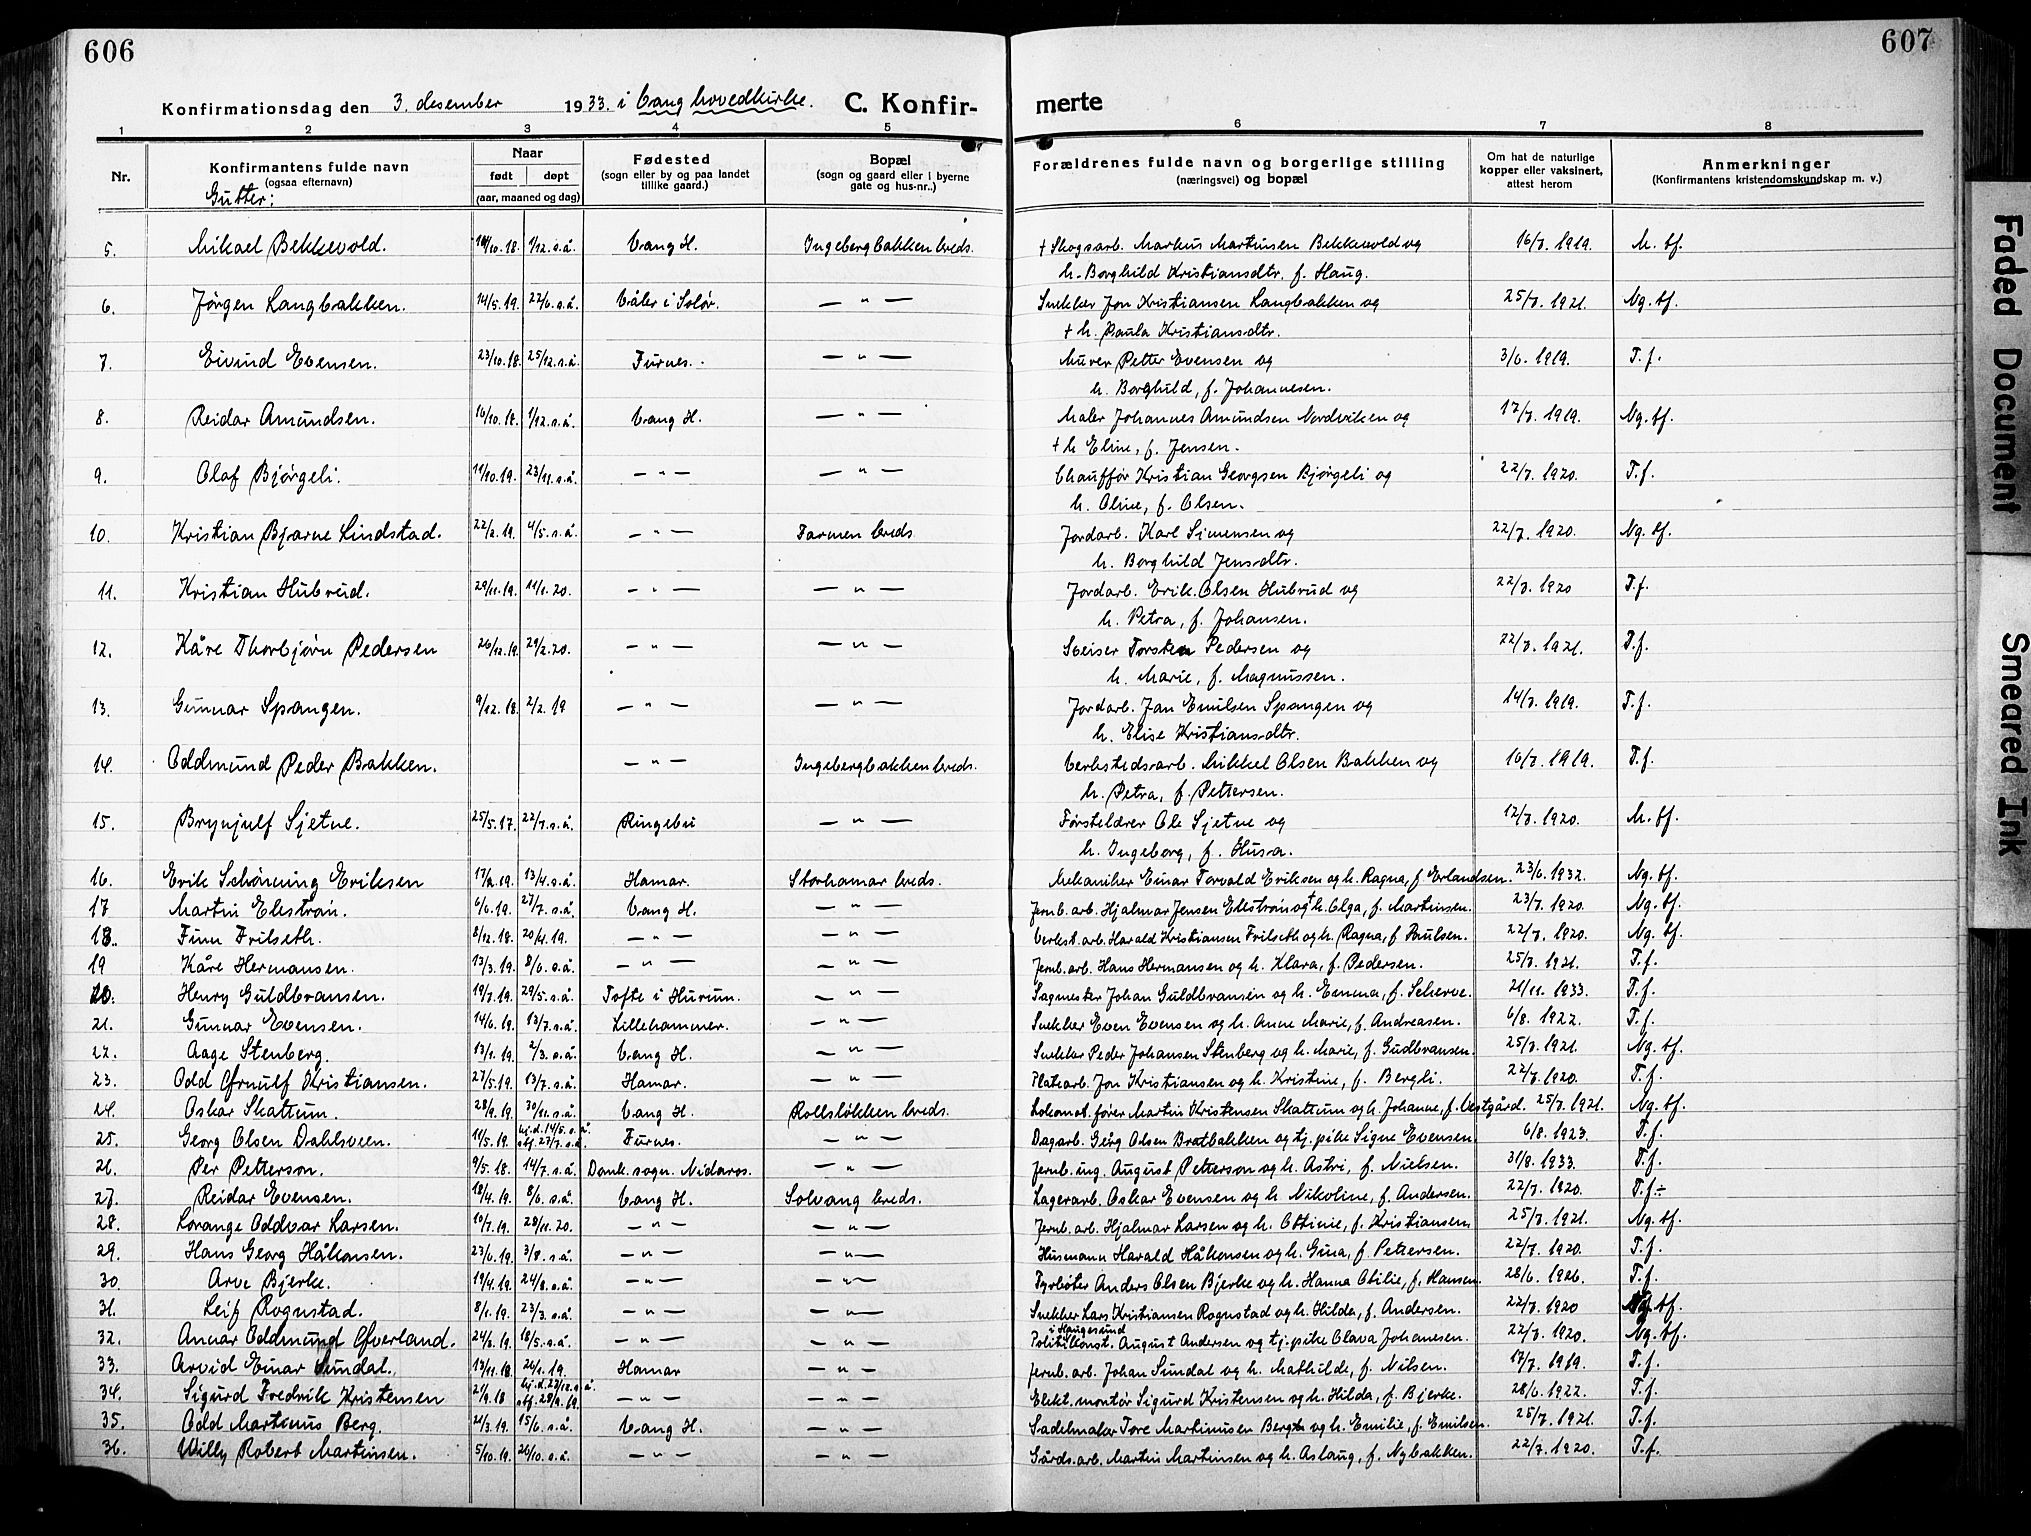 606
607
Konfirmationsdag den 3. desember 1933. i Vang hovedkirke. C. Konfir-
merte
1 2 3 4 5 6 7 8
Nr. Konfirmantens fulde navn (ogsaa efternavn) Naar født døpt (aar, maaned og dag) Fødested (sogn eller by og paa landet tillike gaard.) Bopæl (sogn og gaard eller i byerne gate og hus-nr..) Forældrenes fulde navn og borgerlige stilling (næringsvei) og bopæl Om hat de naturlige kopper eller vaksinert, attest herom Anmerkninger (Konfirmantens kristendomskundskap m. v.)
Gutter:
5. Mikael Bekkevold. 1/12. s.å. Vang H. Ingebergbakken kreds. + Skogsarb. Markus Martinsen Bekkevold og 16/7. 1919. M. tf.
h. Borghild Kristiansdtr. f. Haug.
6. Jørgen Langbakken. 14/5. 19. 22/6. s.å. Våler i Solør. — " — Snekker Jon Kristiansen Langbakken og 25/7. 1921. Ng. tf.
+ h. Paula Kristiansdtr.
7. Eivind Evensen. 23/10. 18. 25/12. s.å. Furnes. — " — Murer Petter Evensen og 3/6. 1919. T. f.
h. Borghild, f. Johannesen.
8. Reidar Amundsen. 16/10. 18. 1/12. s.å. Vang H. — " — Maler Johannes Amundsen Nordviken og 17/7. 1919. Ng. tf.
+ h Eline, f. Jensen.
9. Olaf Bjørgeli. 11/10. 19. 23/11. s.å. — " — — " — Chauffør Kristian Georgsen Bjørgeli og 22/7. 1920. T. f.
h. Oline, f. Olsen.
10. Kristian Bjarne Lindstad. 22/2. 19. 4/5. s.å. — " — Farmen kreds. Jordarb. Karl Simensen og 22/7. 1920. Ng. tf.
h. Borghild Jensdtr.
11. Kristian Hubred. 29/11. 19. 11/1. 20. — " — — " — Jordarb. Erik Olsen Hubrud og 22/7. 1920 T. f.
h. Petra, f. Johansen.
12. Kåre Thorbjørn Pedersen 26/12. 19. 29/2. 20. — " — — " — Sveiser Torsten Pedersen og 22/7. 1921. T. f.
h. Marie, f. Magnussen.
13. Gunnar Spangen. 9/12. 18. 2/2. 19 — " — — " — Jordarb. Jan Emilsen Spangen og 14/7. 1919. T. f.
h. Elise Kristiansdtr.
14. Oddmund Peder Bakken. — " — Ingebergbakken kreds. Verkstedsarb. Mikkel Olsen Bakken og 16/7. 1919. T. f.
h. Petra, f. Pettersen.
15. Brynjulf Sjetne. 25/5. 17. 22/7. s.å. Ringebu — " — Førstelærer Ole Sjetne og 17/7. 1920. M. tf.
h. Ingeborg, f. Husa.
16. Erik Schønning Eriksen 17/2. 19. 13/4. s.å. Hamar. Storhamar kreds. Mekaniker Einar Torvald Eriksen og h. Ragna, f Erlandsen. 23/6. 1932. Ng. tf.
17 Martin Ekstrøm. 6/6. 19. 27/7. s.å. Vang H. — " — Jernb. arb. Hjalmar Jensen Ekstrøm og + h. Olga, f. Martinsen. 23/7. 1920. Ng. tf.
18. Finn Frilseth. 8/12. 18. 20/4. 19. — " — — " — Verkst. arb. Harald Kristiansen Frilseth og h. Ragna, f Paulsen. 22/7. 1920. Ng. tf.
19 Kåre Hermansen. 13/3. 19. 8/6. s.å. — " — — " — Jernb. arb. Hans Hermansen og h. Klara, f. Pedersen. 25/7. 1921. T. f.
20. Henry Guldbransen. 29/5. s.å. Tofte i Hurum. — " — Sagmester Johan Guldbransen og h. Emma, f. Scherve. 21/11. 1933. T. f.
21. Gunnar Evensen. 14/6. 19. 13/7. s.å. Lillehammer. — " — Snekker Even Evensen og h. Anne Marie, f. Andreasen. 6/8. 1922. T. f.
22. Aage Stenberg. 13/1. 19. 2/3. s.å. Vang H. — " — Snekker Peder Johansen Stenberg og h. Marie, f. Gudbransen. 25/7. 1921. Ng. tf.
23. Odd Ørnulf Kristiansen. 27/5. 19. 13/7. s.å. Hamar. — " — Platearb. Jon Kristiansen og h. Kristine, f. Bergli. 22/7. 1920. T. f.
24. Oskar Skattum. 28/9. 19. 30/11. s.å. Vang H. Rollsløkken kreds. Lokomot. fører Martin Kristensen Skattum og h. Johanne, f. Vestgård. 25/7. 1921. Ng. tf.
25. Georg Olsen Dahlsveen. 11/5. 19. hj.d. 14/5. s.å. stf. 27/7. s.å. Furnes. — " — Dagarb. Georg Olsen Bratbakken og tj. pike Signe Evensen. 6/8. 1923. T. f.
26. Per Petterson. 9/5. 18. 14/7. s.å. Domk. sogn. Nidaros. — " — Jernb. ing. August Petterson og h. Astri, f. Nielsen. 31/8. 1933. T. f.
27. Reidar Evensen. 18/4. 19. 8/6. s.å. Vang H. Solvang kreds. Lagerarb. Oskar Evensen og h. Nikoline, f. Andersen. 22/7. 1920. T. f. ÷
28. Lorange Oddvar Larsen. 10/7. 19. 28/11. 20. — " — — " — Jernb. arb. Hjalmar Larsen og h. Otinie, f. Kristiansen. 25/7. 1921. Ng. tf.
29. Hans Georg Håkonsen. 23/6. 19. 3/8. s.å. — " — — " — Husmann Harald Håkonsen og h. Gina, f. Pettersen. 22/7. 1920. T. f.
30. Arve Bjerke. 19/4. 19. 24/8. s.å. — " — — " — Fyrbøter Anders Olsen Bjerke og h. Hanna Otilie, f. Hansen. 28/6. 1926. T. f.
31. Leif Rognstad. 8/1. 19. 23/3. s.å. — " — — " — Snekker Lars Kristiansen Rognstad og h. Hilda, f. Andersen. 22/7. 1920 Ng. tf.
32. Annar Oddmund Øverland. 18/5. s.å. — " — — " — Politikonst. i Haugesund August Andersen og tj. pike Olava Johansen. 22/7. 1920. Ng. tf.
33. Arvid Einar Sundal. 13/11. 18. 26/1. 19. Hamar — " — Jernb. arb. Johan Sundal og h. Mathilde, f. Nilsen. 17/7. 1919. T. f.
34. Sigurd Fredrik Kristensen 2/9. 18 hj.d. s.å. stf. 28/9. 19. — " — — " — Elekt. montør Sigurd Kristensen og h. Hilda, f. Bjerke. 28/6. 1922. T. f.
35. Odd Martinus Berg. 21/3. 19. 15/6. s.å. Vang H. — " — Sadelmaker Tore Martinusen Berg og h. Emilie, f. Emilsen. 25/7. 1921. T. f.
36. Willy Robert Martinsen. 5/10. 19. 26/10. s.å. — " — — " — Gårds. arb. Martin Martinsen og h. Aslaug, f. Nybakken. 22/7. 1920. T. f.
Faded Document
Smeared Ink